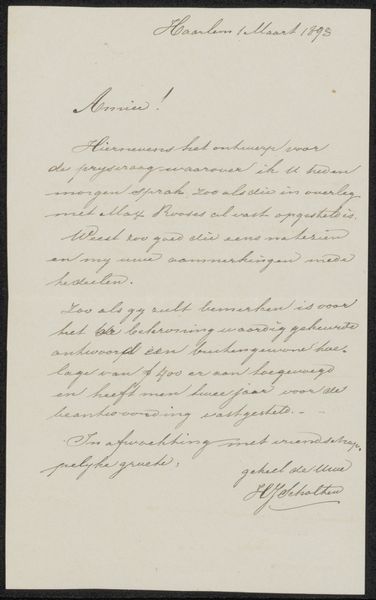 Haarlem 1 Maart 1893
Amice!
Hiernevens het ontwerp voor
de prysvraag waarover ik U heden
morgen sprak zoo als die in overleg
met Max Rooses al vast opgesteld is.
Weest zoo goed die eens
en my uwe aanmerkingen mede
te deelen.
Zoo als gy zult bemerken is voor
het bekroning waardig gekeurde
antwoord een buitengewone toe-
lage van ƒ 400 er aan toegevoegd
en heeft men twee jaar voor de
beantwoording vastgesteld. -
In afwachting met vriendschap-
pelyke groete,
geheel de Uwe
HJScholten